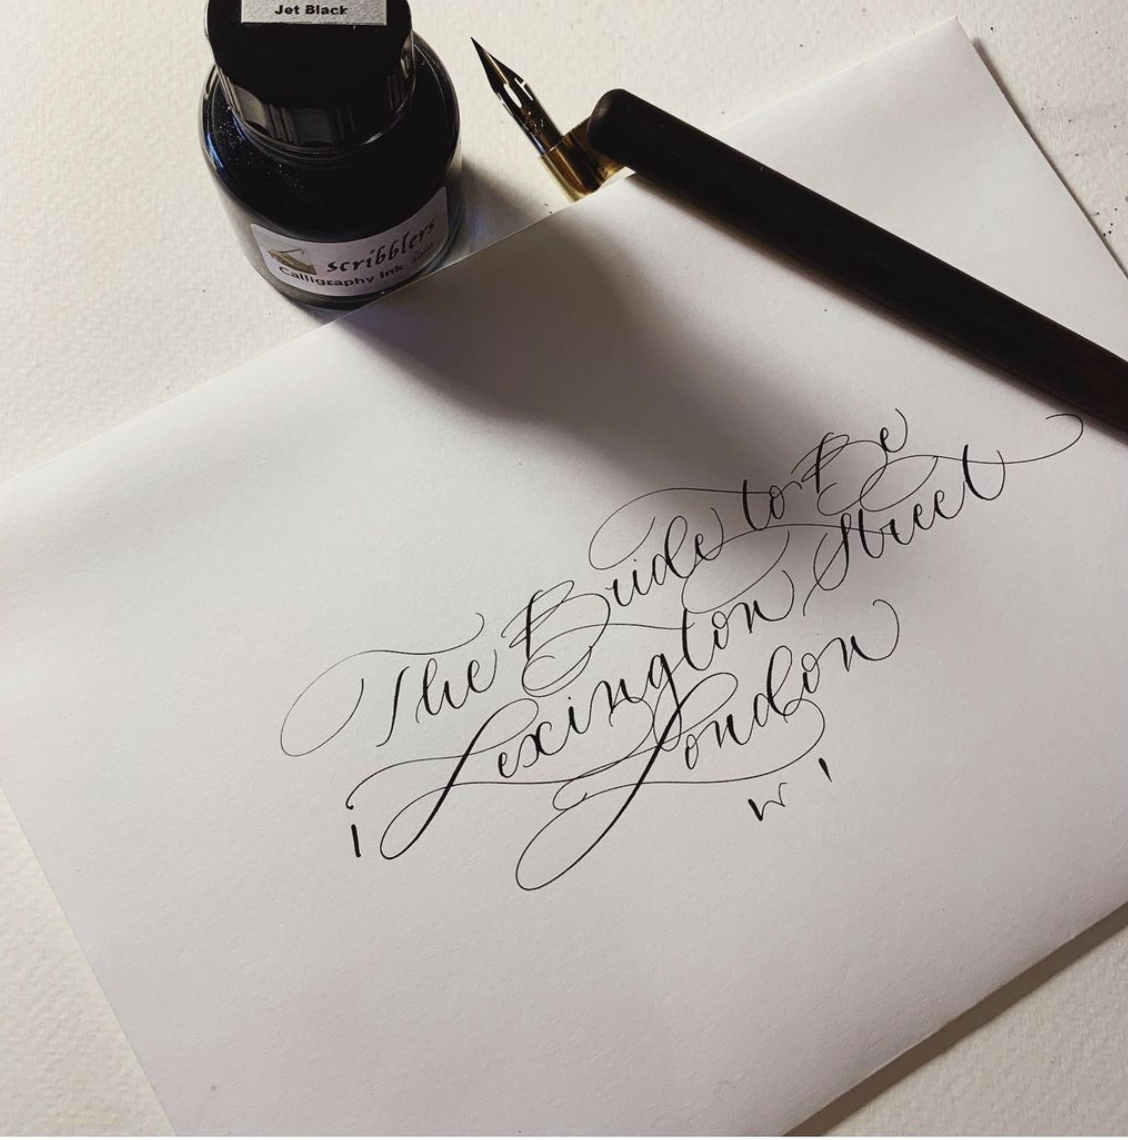 Jet Black
Scribblers
Calligraphy Ink
The Bride to Be
1 Lexington Street
London
W1